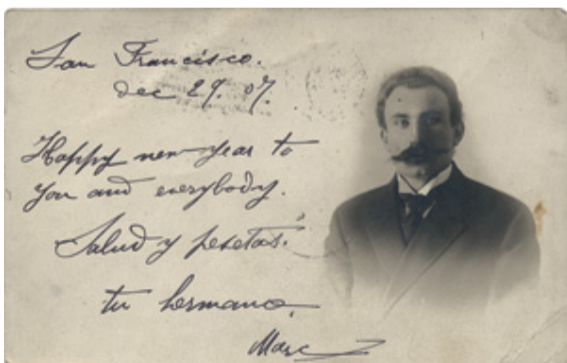 San Francisco.
Dec 29. 07.
Happy new year to
you and everybody.
Salud y pesetas.
tu hermano,
Marc